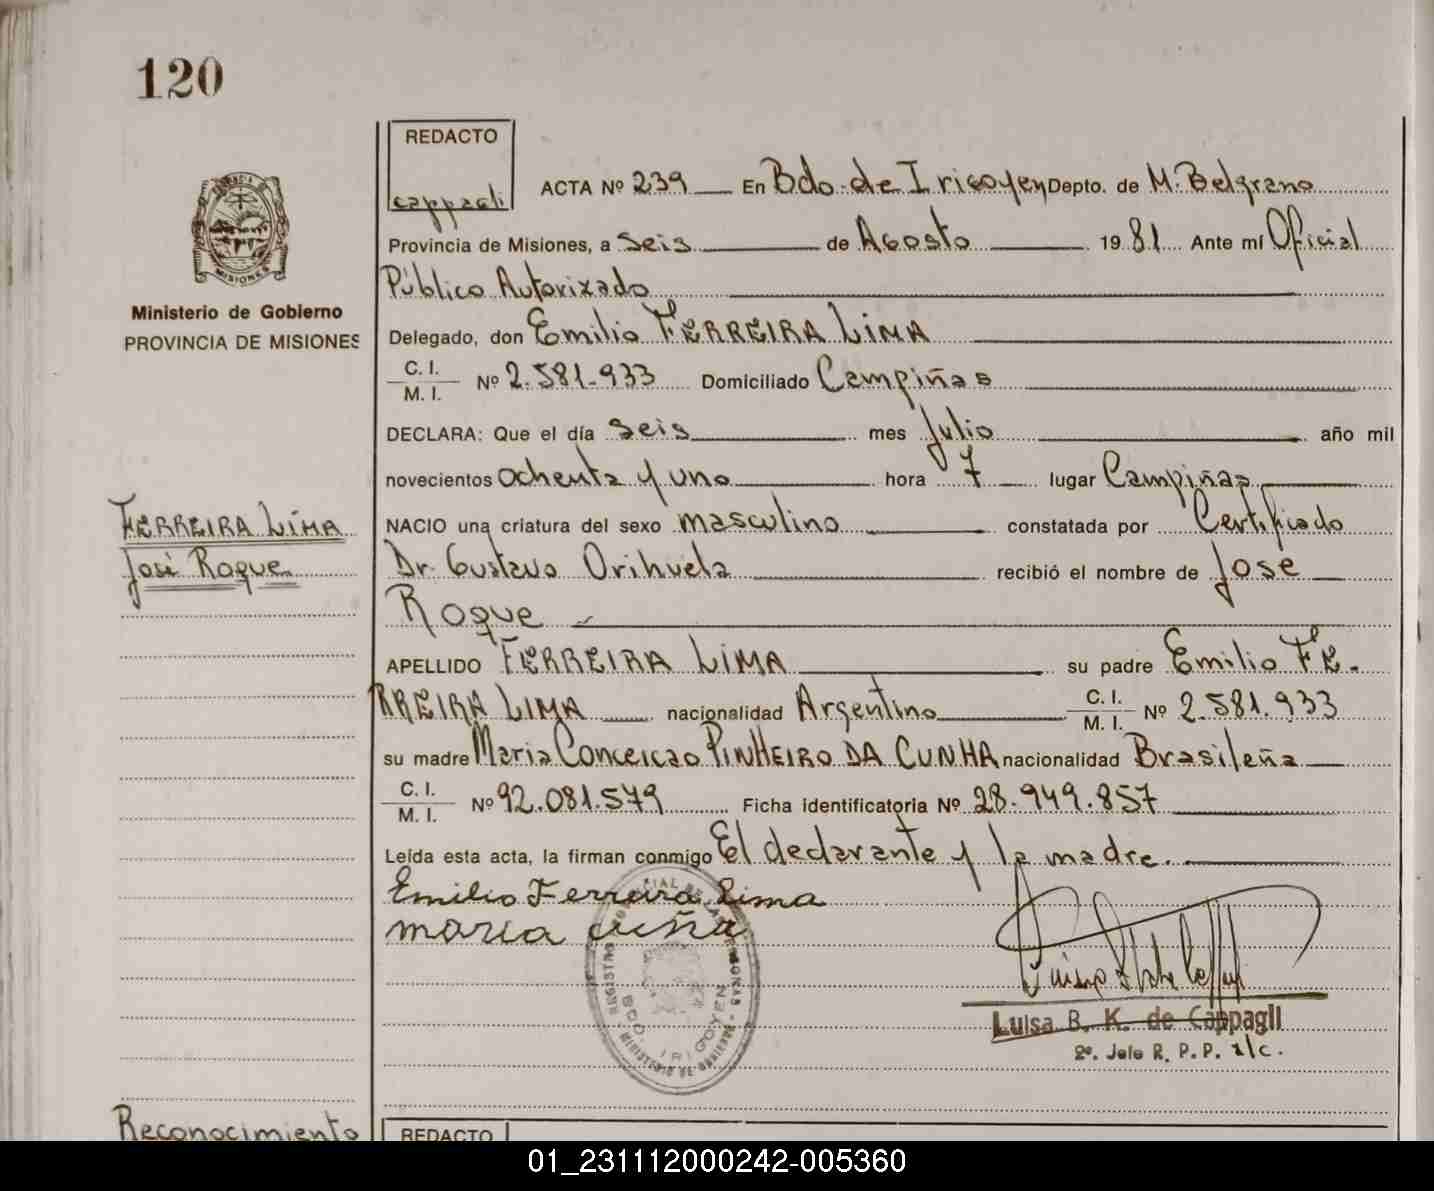 120
REDACTO
cappagli
ACTA Nº 239 En Bdo. de Irigoyen Depto. de M. Belgrano
Provincia de Misiones, a seis de Agosto 1981 Ante mí Oficial
Público Autorizado
MISIONES
Ministerio de Gobierno
PROVINCIA DE MISIONES
Delegado, don Emilio FERREIRA LIMA
C. I.
M. I. Nº 2.581.933 Domiciliado Campiñas
DECLARA: Que el día seis mes Julio año mil
novecientos ochenta y uno hora 7 lugar Campiñas
FERREIRA LIMA
José Roque
NACIO una criatura del sexo masculino constatada por Certificado
Dr. Gustavo Orihuela recibió el nombre de Jose
Roque
APELLIDO FERREIRA LIMA su padre Emilio FE-
RREIRA LIMA nacionalidad Argentino C. I.
M. I. Nº 2.581.933
su madre Maria Conceicao PINHEIRO DA CUNHA nacionalidad Brasileña
C. I.
M. I. Nº 92.081.579 Ficha identificatoria Nº 28.949.857
Leída esta acta, la firman conmigo El declarante y la madre.
Emilio Ferreira Lima
maria cuña
BDO. IRIGOYEN
MINISTERIO DE GOBIERNO
Luisa B. K. de Cappagli
2º. Jefe R. P. P. a/c.
Reconocimiento
REDACTO
01_231112000242-005360